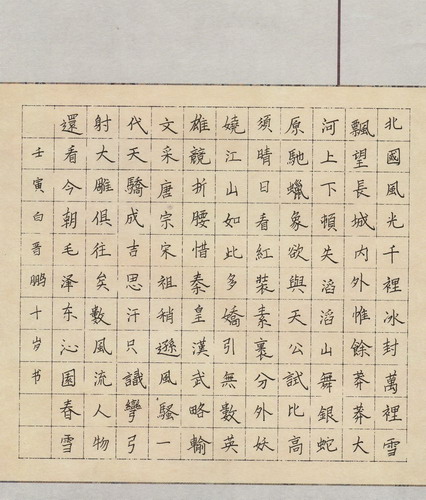 北國風光千裡冰封萬裡雪
飄望長城內外惟餘莽莽大
河上下頓失滔滔山舞銀蛇
原馳蠟象欲與天公試比高
須晴日看紅裝素裹分外妖
嬈江山如此多嬌引無數英
雄競折腰惜秦皇漢武略輸
文采唐宗宋祖稍遜風騷一
代天驕成吉思汗只識彎弓
射大雕俱往矣數風流人物
還看今朝毛泽东沁園春雪
壬寅白晋鵬十岁书